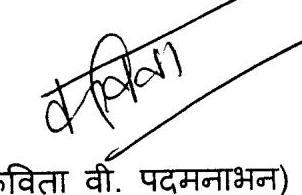 कविता
विता वी. पदमनाभन)